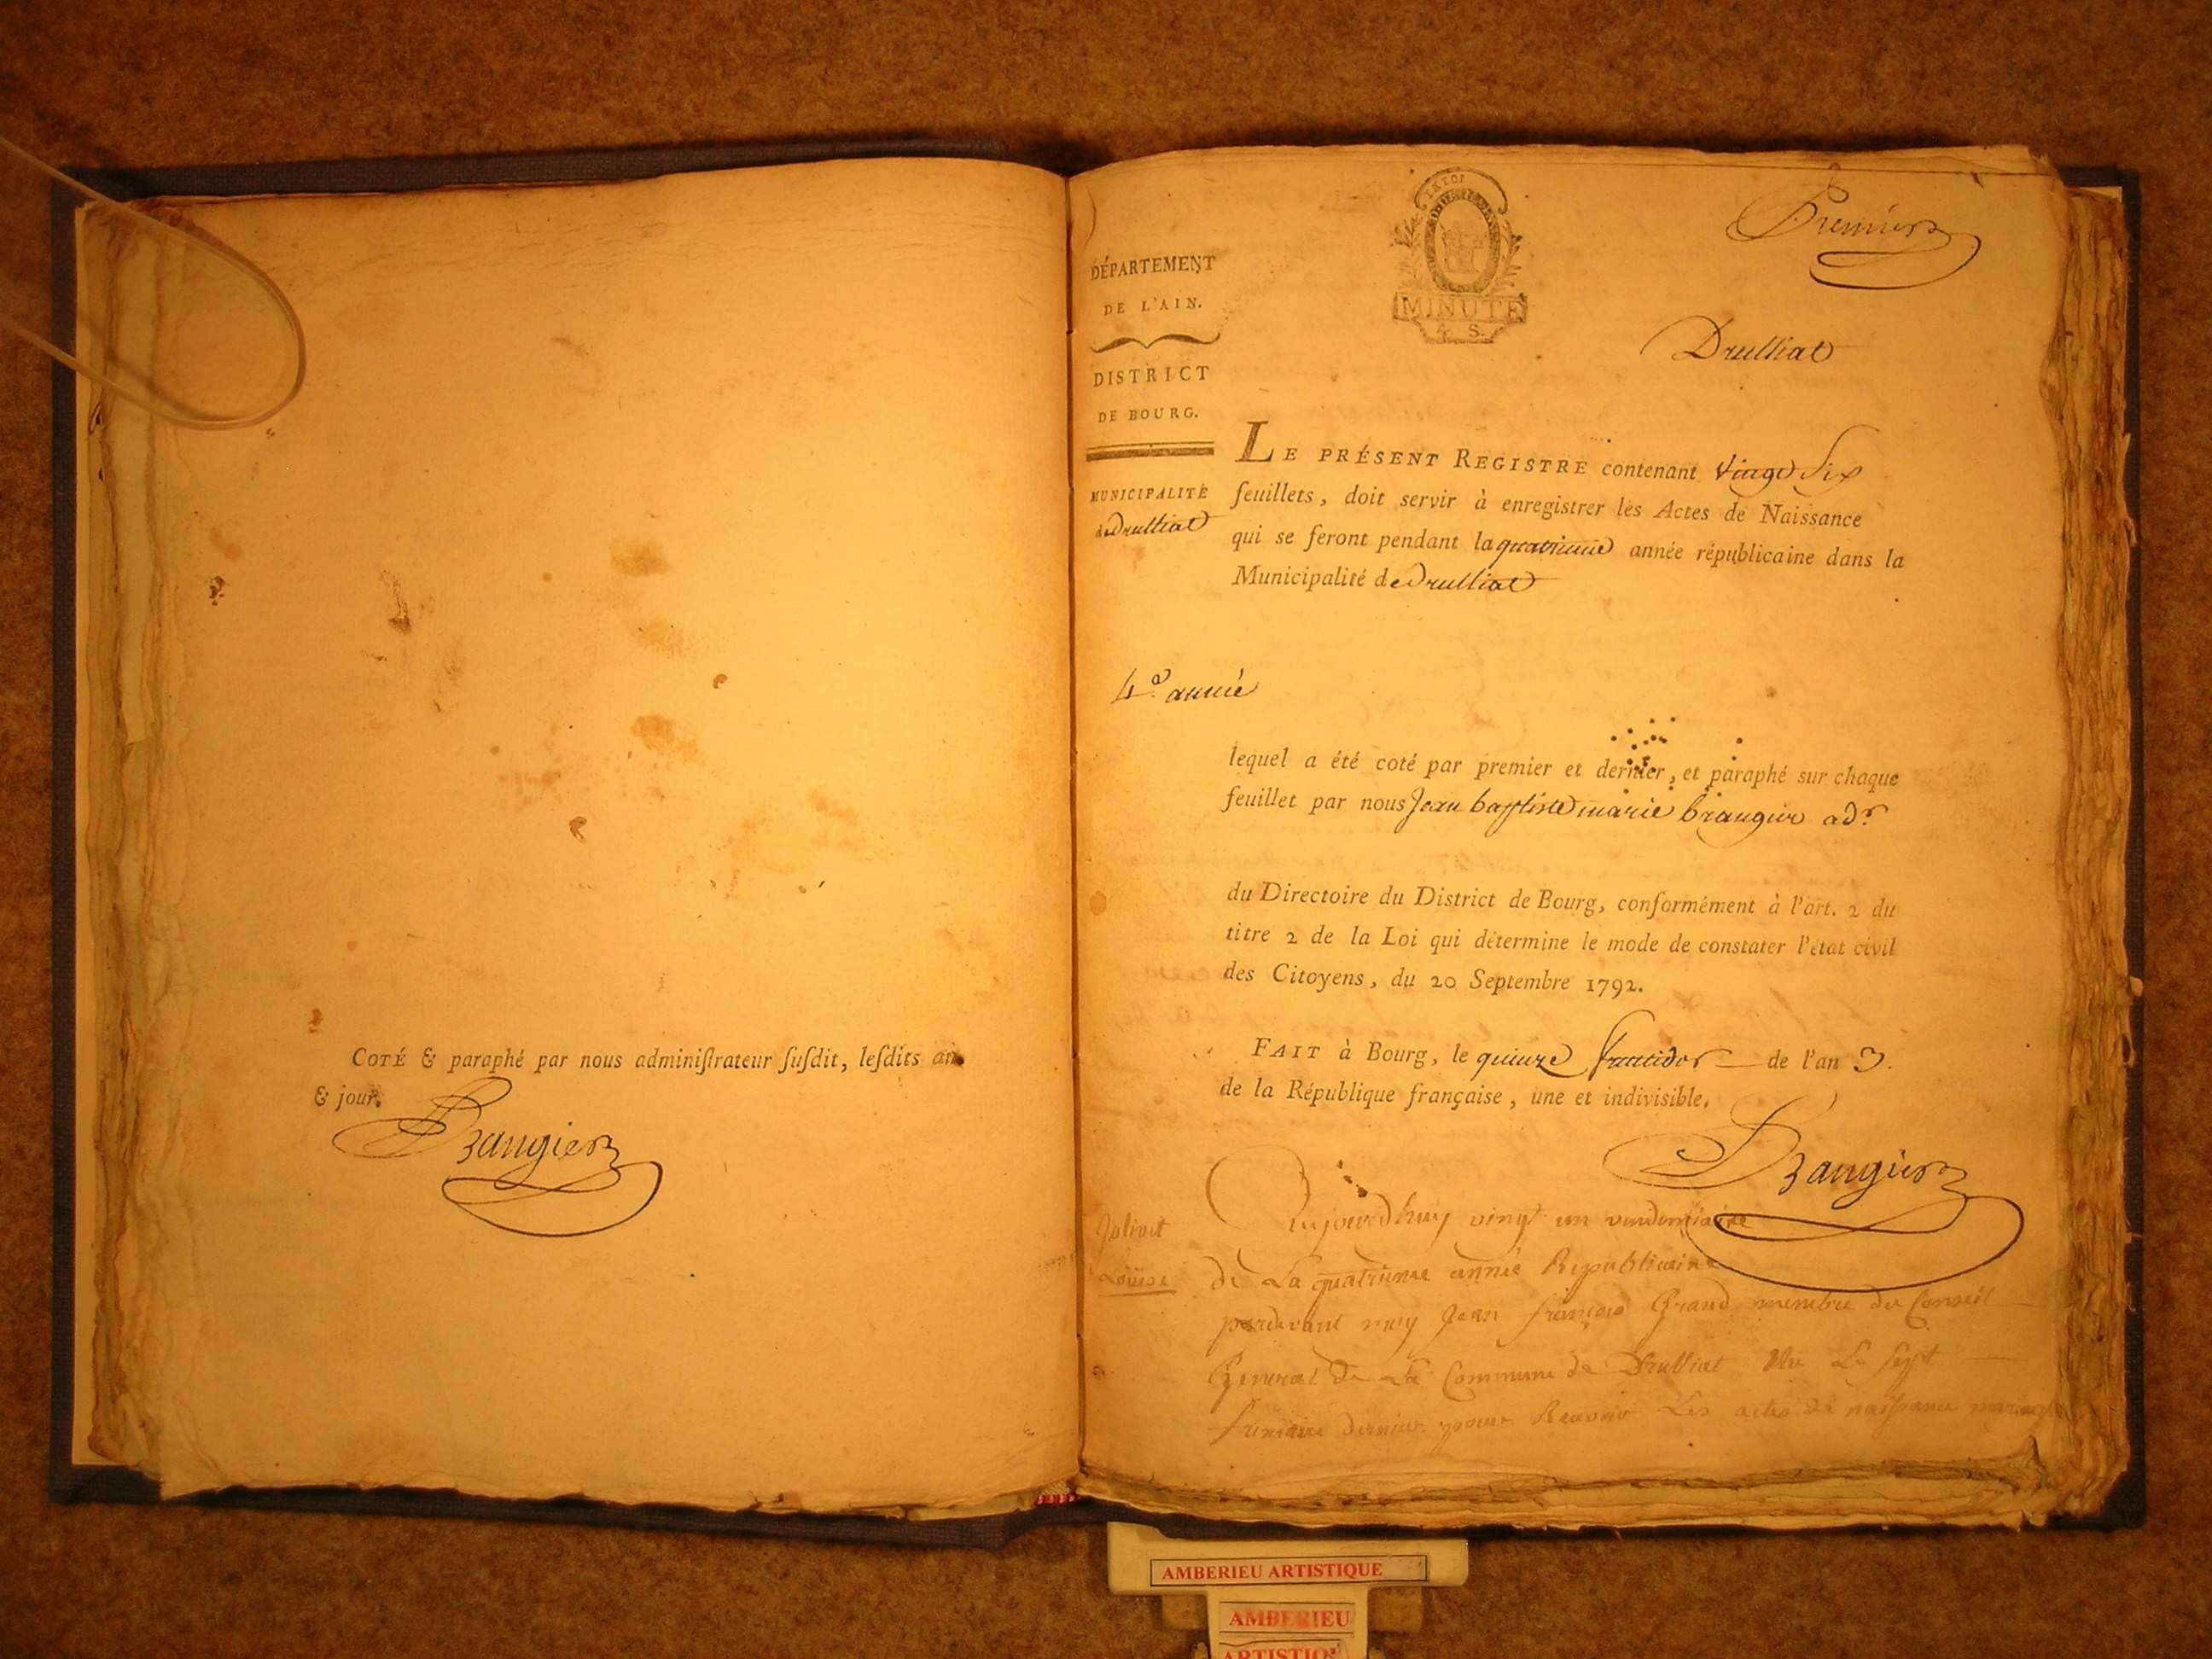 COTÉ & paraphé par nous adminiſtrateur ſuſdit, leſdits an
& jour.
Brangier
LA LOI
MINUTE
4. S.
Premier
DÉPARTEMENT
DE L'AIN.
DISTRICT
DE BOURG.
MUNICIPALITÉ
de Drulliat
Drulliat
LE PRÉSENT REGISTRE contenant vingt Six
feuillets, doit servir à enregistrer les Actes de Naissance
qui se feront pendant la quatrieme année républicaine dans la
Municipalité de Drulliat
4.e année
lequel a été coté par premier et dernier, et paraphé sur chaque
feuillet par nous Jean baptiste marie brangier adr
du Directoire du District de Bourg, conformément à l'art. 2 du
titre 2 de la Loi qui détermine le mode de constater l'état civil
des Citoyens, du 20 Septembre 1792.
FAIT à Bourg, le quinze fructidor de l'an 3.
de la République française, une et indivisible.
Brangier
Jolivet
Loüise
Aujourdhuy vingt un vendemiaire
de La quatrieme année Republicaine
pardevant moy Jean françois Grand membre du Conseil
General de La Commune de Drulliat Elu Le sept
frimaire dernier pour Recevoir Les actes de naissance mariage
AMBERIEU ARTISTIQUE
AMBERIEU
ARTISTIQUE